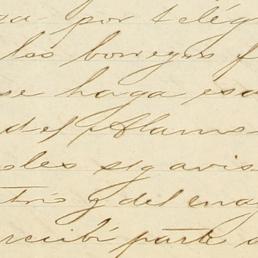 por telég
los borregos f
se haga esa
del Alamo
les sig avis
y del
recibí parte